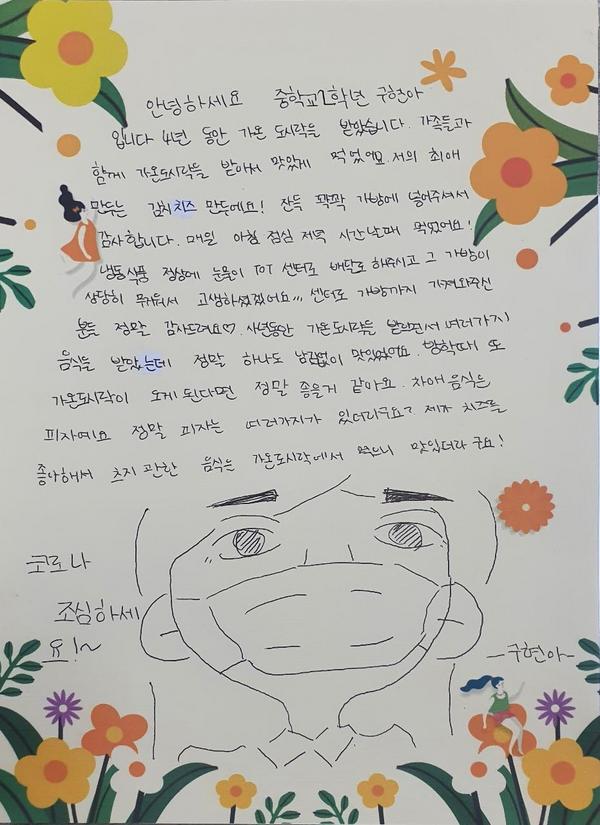 안녕하세요 중학교1학년 구현아
입니다 4년 동안 가온 도시락을 받았습니다. 가족들과
함께 가온도시락을 받아서 맛있게 먹었어요. 저의 최애
만두는 김치치즈 만두에요! 잔득 꽉꽉 가방에 넣어주셔서
감사합니다. 매일 아침 점심 저녁 시간날때 먹었어요!
냉동식품 정상에 눈물이 TOT 센터로 배달로 해주시고 그 가방이
상당히 무거워서 고생하셨겠어요,,, 센터로 가방까지 가져와주신
분들 정말 감사드려요♡. 4년동안 가온도시락을 받으면서 여러가지
음식들 받았는데 정말 하나도 남김없이 맛있었어요. 방학때 또
가온도시락이 오게 된다면 정말 좋을거 같아요. 차애 음식은
피자에요 정말 피자는 여러가지가 있더라구요? 제가 치즈를
좋아해서 츠지 관한 음식은 가온도시락에서 먹으니 맛있더라구요!
코로나
조심하세
요!~
-구현아-